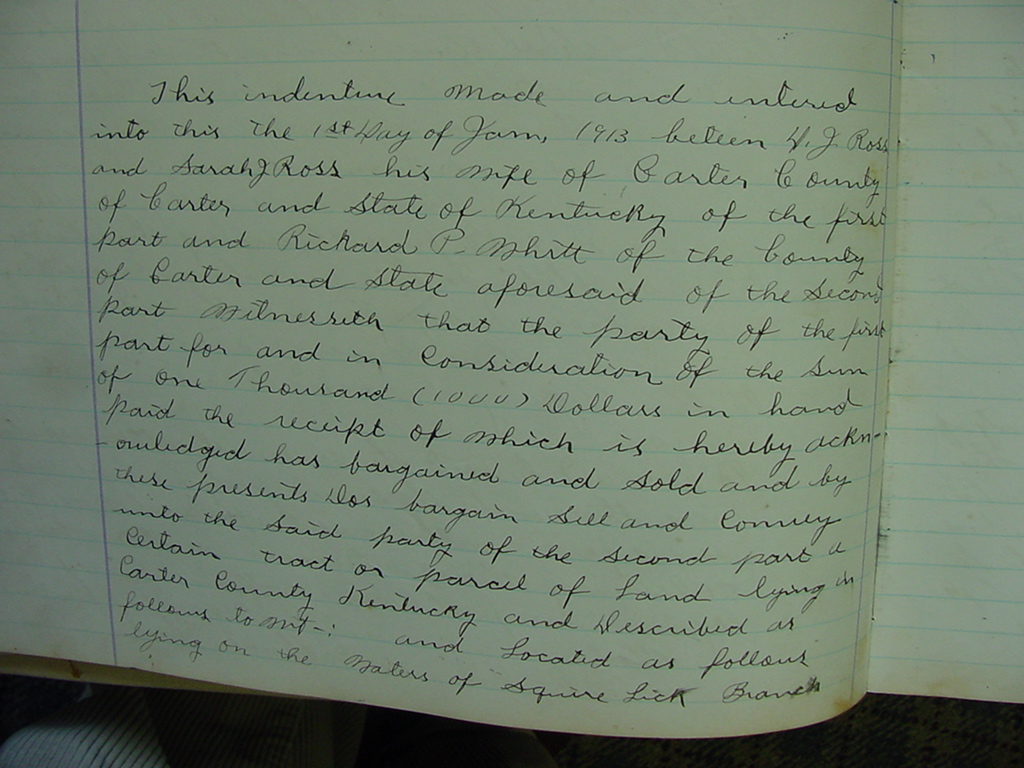 This indenture made and entered
into this the 1st Day of Jan, 1913 beteen W. J. Ross
and Sarah J Ross his wife of Carter County
of Carter and State of Kentucky of the first
part and Richard P. Whitt of the County
of Carter and State aforesaid of the Second
part Witnesseth that the party of the first
part for and in Consideration of the Sum
of one Thousand (1000) Dollars in hand
paid the receipt of which is hereby ackn-
owledged has bargained and sold and by
these presents Dos bargain Sell and Convey
unto the Said party of the second part a
Certain tract or parcel of Land lying in
Carter County Kentucky and Described as
follows to wit-: and Located as follows
lying on the waters of Squire Lick Branch